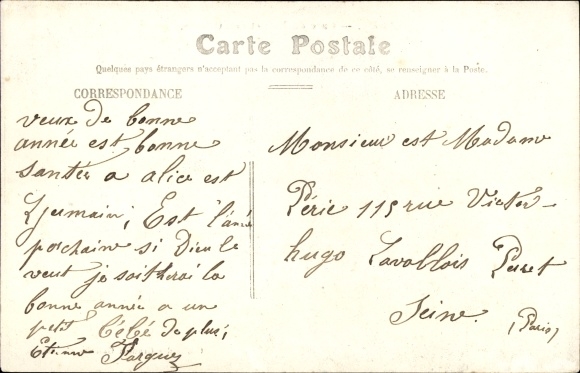 Carte Postale
Quelques pays étrangers n'acceptant pas la correspondance de ce côté, se renseigner à la Poste.
CORRESPONDANCE
veux de bonne
année est bonne
santér a alice est
Germain; Est l'ané
pochaine si Dieu le
veut je soitherai la
bonne année a un
petit bébé de plus;
Etienne Fargues
ADRESSE
Monsieur est Madame
Périe 115 rue Victor-
hugo Lavallois Peret
Seine.
(Paris)